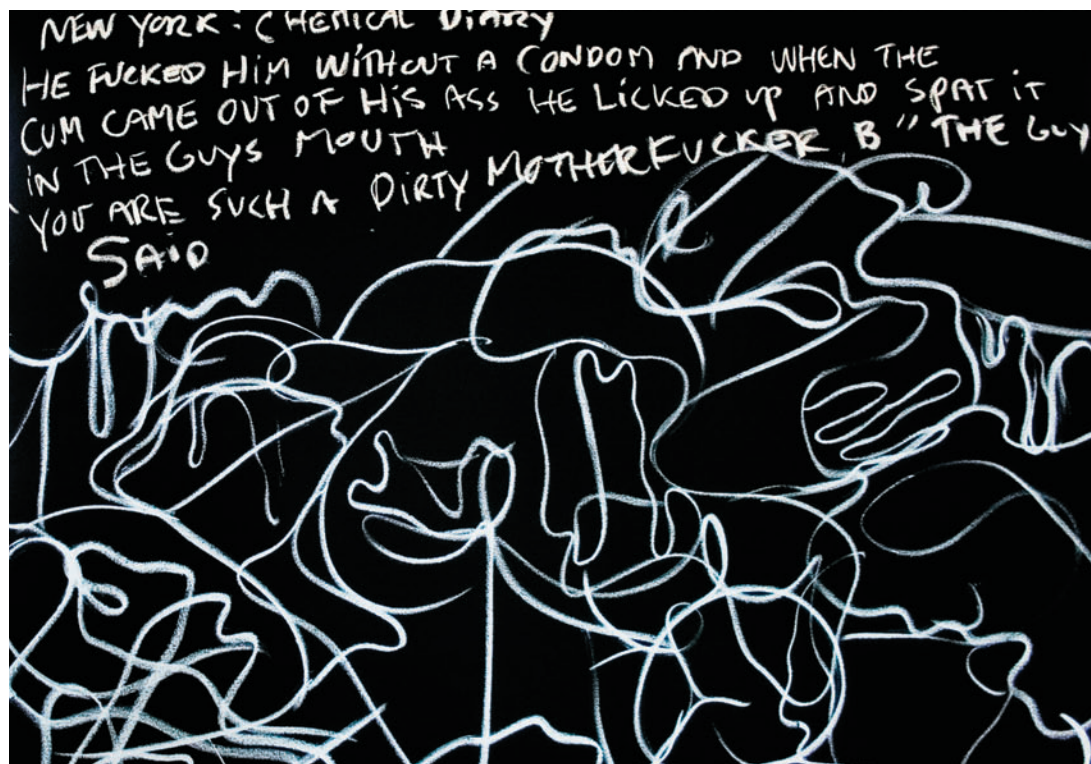 NEW YORK: CHEMICAL DIARY
HE FUCKED HIM WITHOUT A CONDOM AND WHEN THE
CUM CAME OUT OF HIS ASS HE LICKED UP AND SPAT IT
IN THE GUYS MOUTH
YOU ARE SUCH A DIRTY MOTHERFUCKER B " THE GUY
SAID